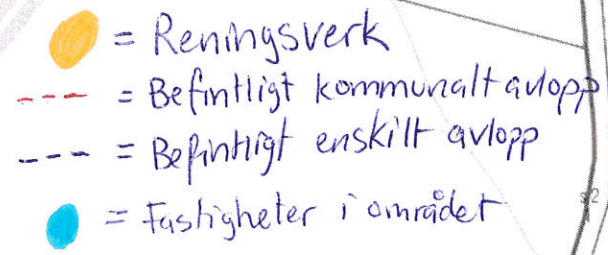 = Reningsverk
--- = Befintligt kommunalt avlopp
--- = Befintligt enskilt avlopp
= Fastigheter i området